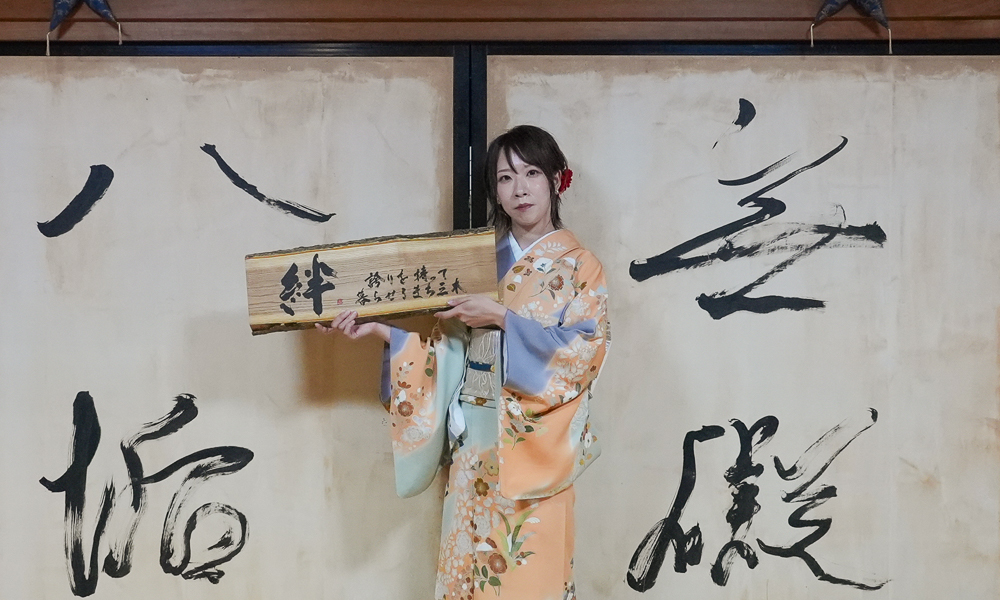 殿
八
絆
誇りを持って
暮らせるまち三木